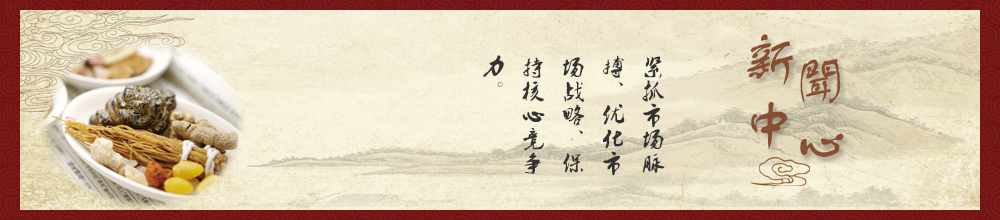 新聞
中心
紧抓市场脉
搏、优化市
场战略、保
持核心竞争
力。